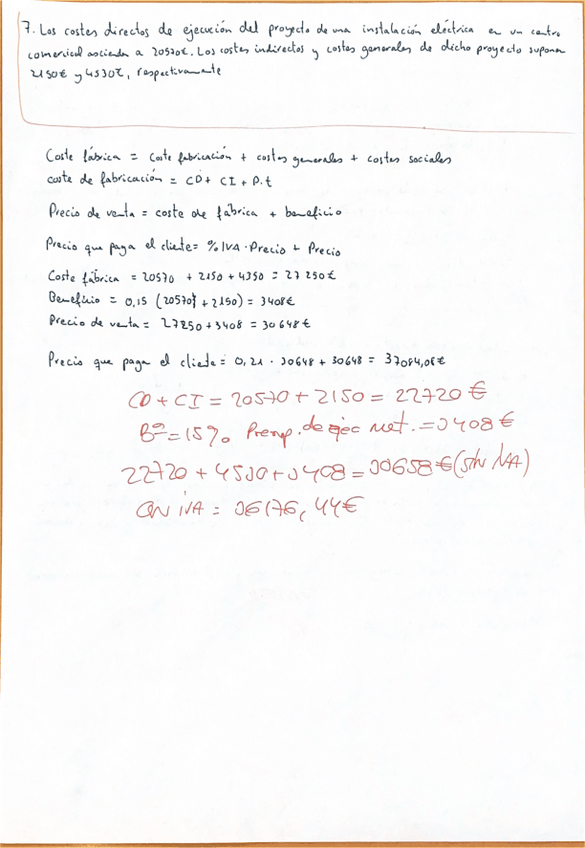 7. Los costes directos de ejecución del proyecto de una instalación eléctrica en un centro
comercial ascienda a 20570€. Los costes indirectos y costes generales de dicho proyecto suponen
2150€ y 4530€, respectivamente
Coste fábrica = Coste fabricación + costes generales + costes sociales
coste de fabricación = CD + CI + P.t
Precio de venta = coste de fábrica + beneficio
Precio que paga el cliente = % IVA · Precio + Precio
Coste fábrica = 20570 + 2150 + 4350 = 27 250€
Beneficio = 0,15 (20570 + 2150) = 3408€
Precio de venta = 27250 + 3408 = 30648€
Precio que paga el cliente = 0,21 · 30648 + 30648 = 37084,08€
CD + CI = 20570 + 2150 = 22720 €
Bº = 15% Presup. de ejec mat. = 3408 €
22720 + 4530 + 3408 = 30658€ (sin IVA)
CON IVA = 36176,44€